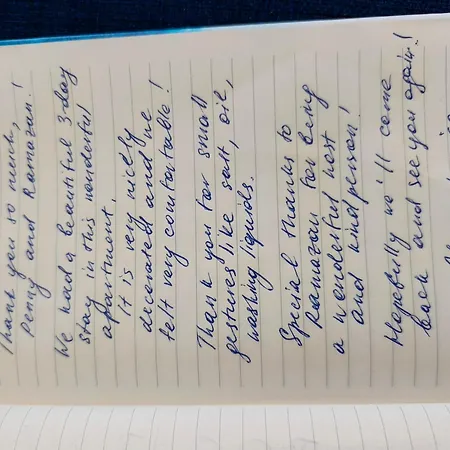 Thank you so much,
Penny and Ramazan!
We had a beautiful 3-day
stay in this wonderful
apartment.
It is very nicely
decorated and we
felt very comfortable!
Thank you for small
gestures like salt, oil,
washing liquids.
Special thanks to
Ramazan for being
a wonderful host
and kind person!
Hopefully we'll come
back and see you again!